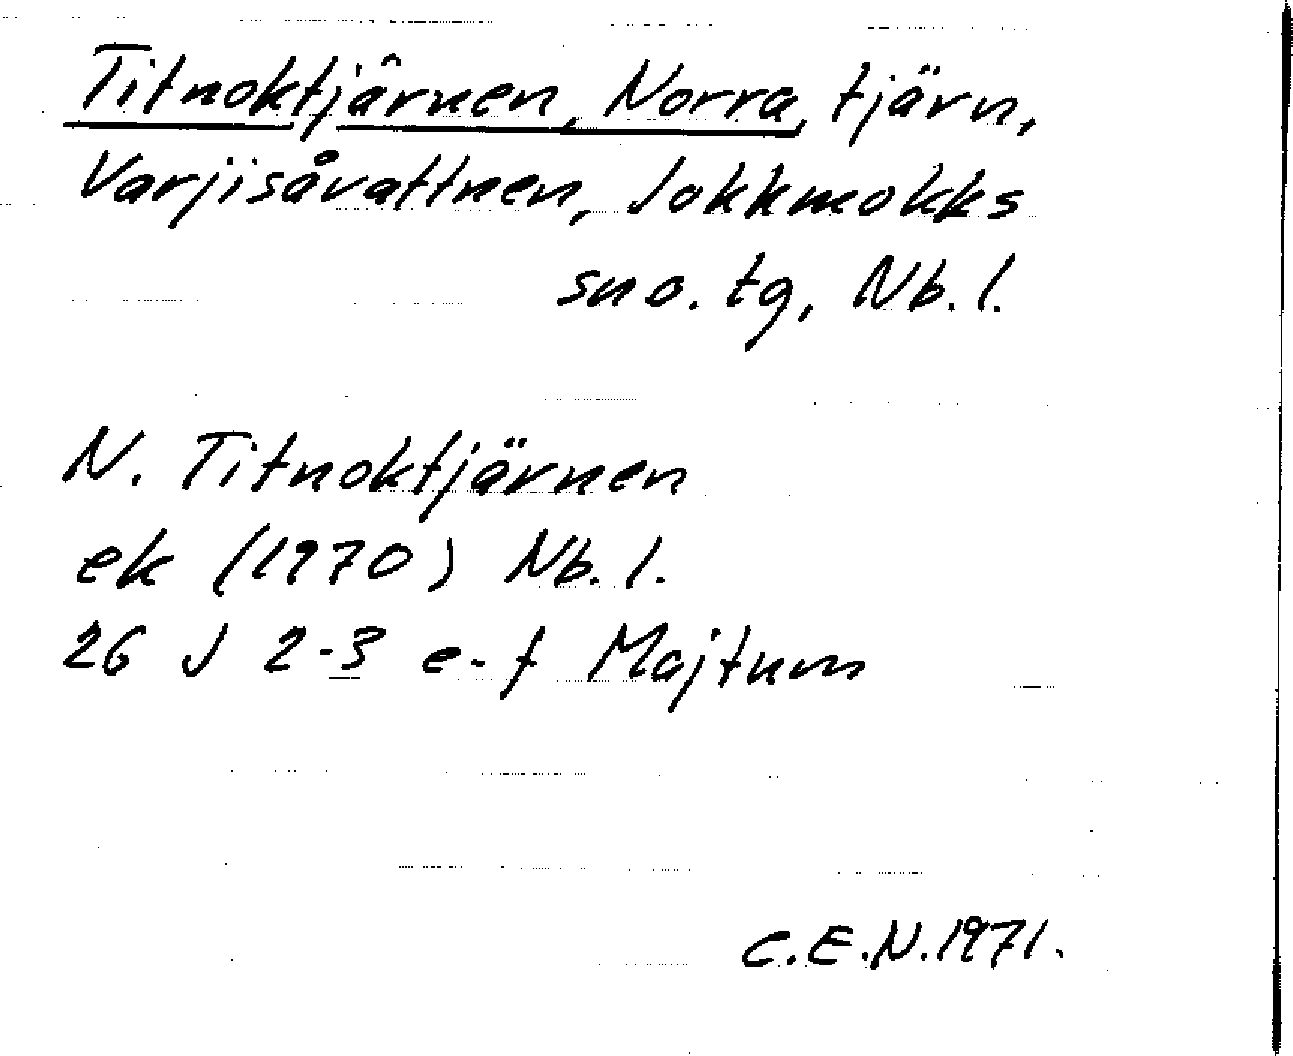 Titnoktjärnen, Norra, tjärn,
Varjisåvattnen, Jokkmokks
sno. tg, Nb. l.
N. Titnoktjärnen
ek (1970) Nb. l.
26 J 2-3 e-f Majtum
C.E.N. 1971.